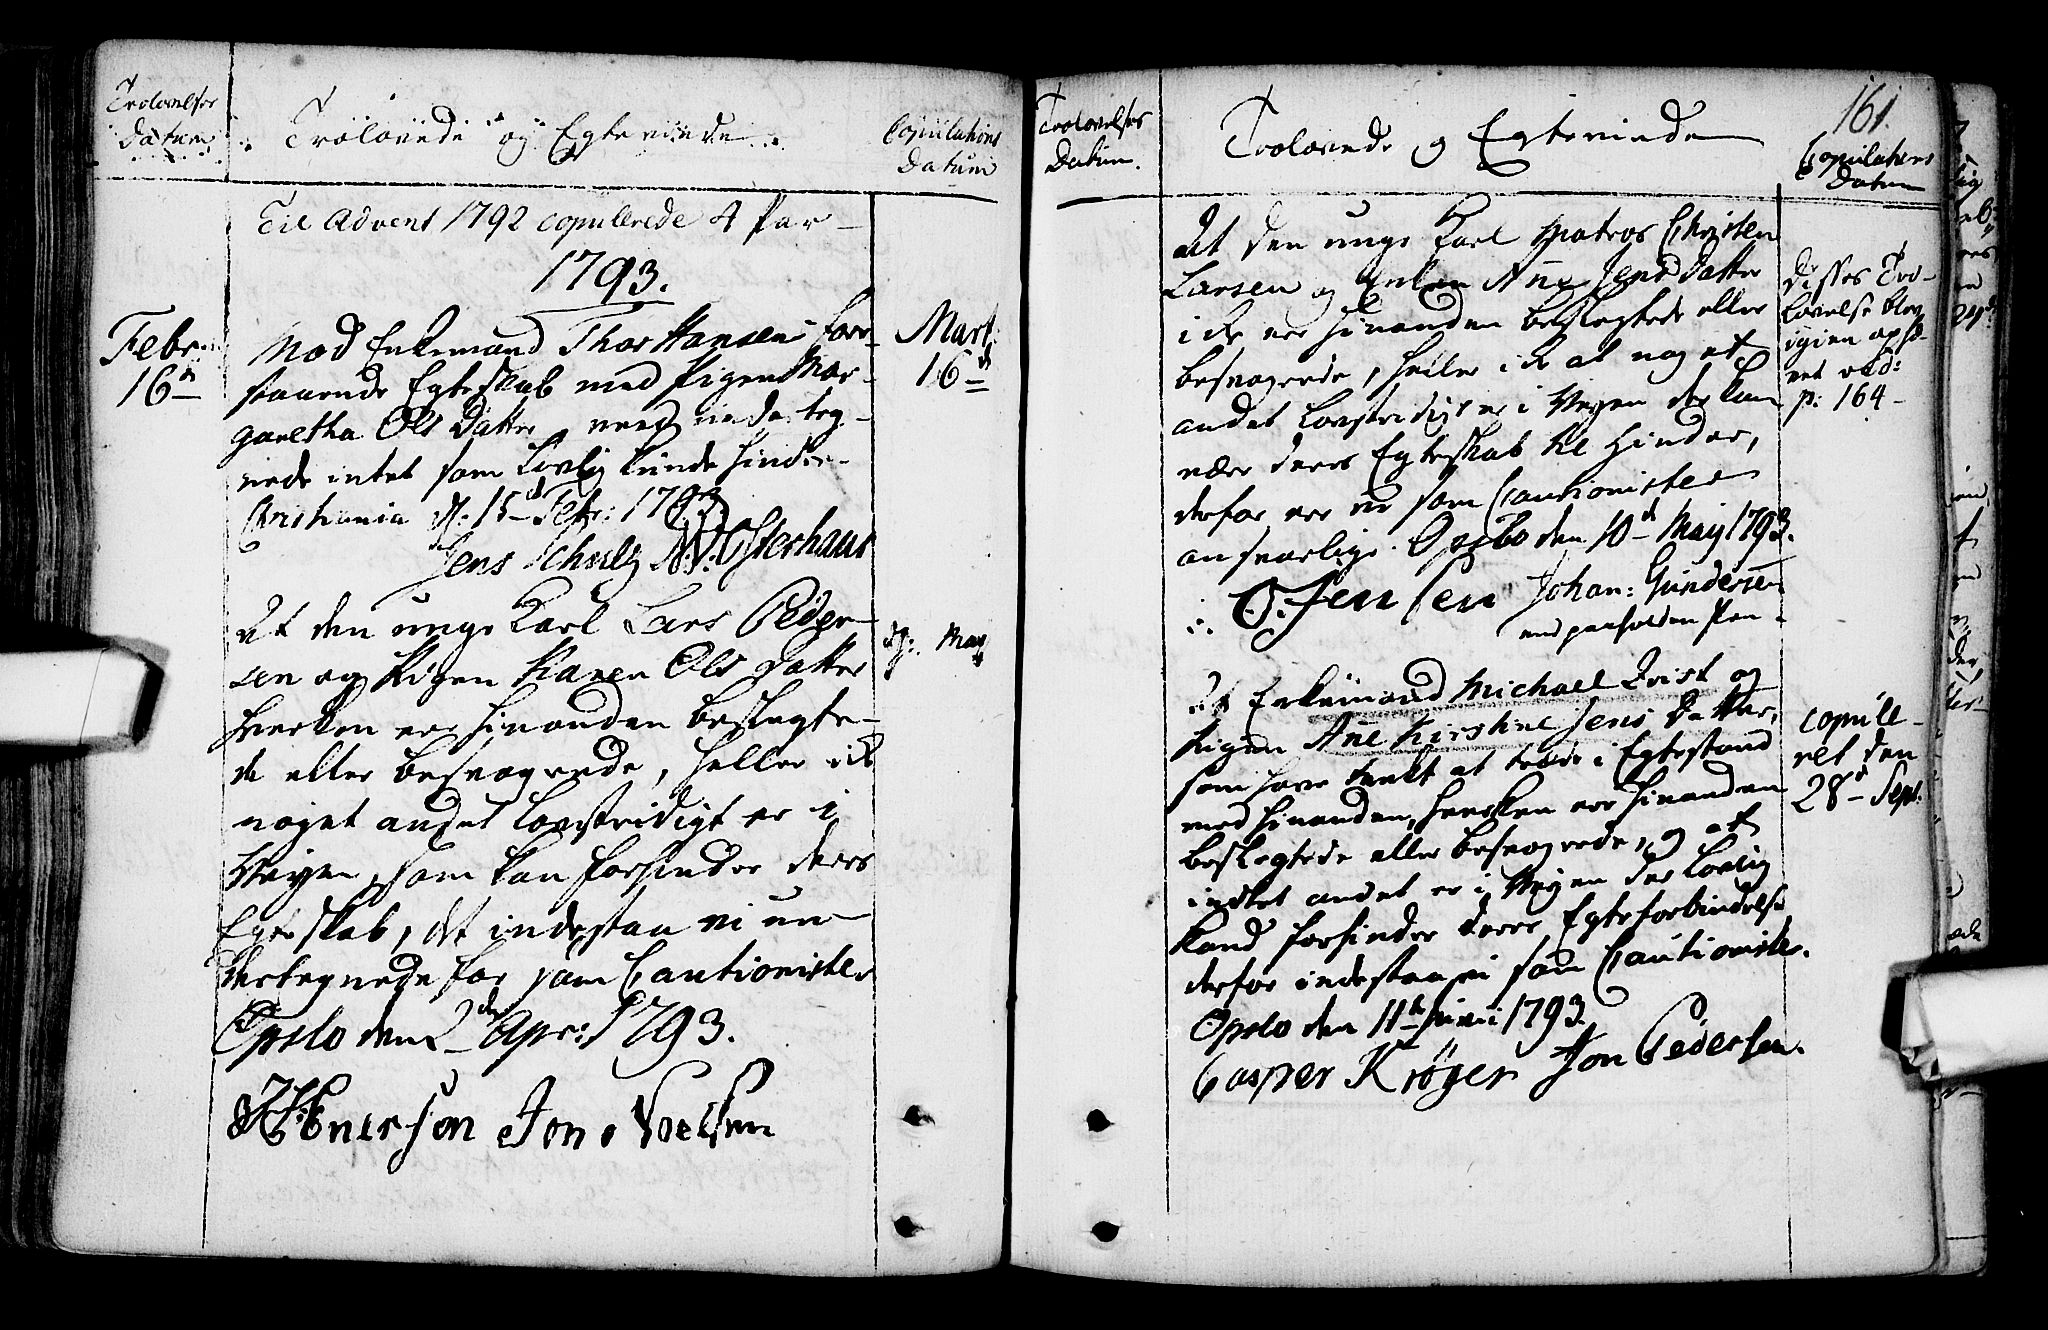 Trolovelses
Datum
Trolovede og Egteviede
Copulations
Datum
Til Advent 1792 copulerede 4 Par
1793.
Febr:
16
Mod Enkemand Thor Hansens fore-
staaende Egteskab med Pigen Mar-
garetha Ols Datter veed underteg-
nede intet som lovlig kunde hindre.
Christiania d: 15 Febr: 1793
Jens Schultz Osterhaus
Mart:
16
At den unge Karl Lars Peder-
sen og Pigen Karen Ols Datter
hverken ere hinanden beslegte-
de eller besvogrede, heller ik
noget andet lovstridigt er i
Veyen, som kan forhindre deres
Egteskab, det indestaa vi un-
dertegnede for som Cautionister
Opslo den 2 Apr: 1793.
Jon Noelsen
d: May
Trolovelses
Datum.
Trolovede og Egteviede
161.
Copulations
Datum
At den unge Karl Matros Christen
Larsen og Enken Ane Jens Datter
ick ere hinanden beslegtede eller
besvogrede, heller ick at noget
andet lovstridigt er i Veyen der kan
være deres Egteskab til Hinder,
derfor ere vi som Cautionister
ansvarlige. Opslo den 10 May 1793.
O. Jensen Johan: Gundersen
med paaholden Pen.
Disses Tro-
lovelse blev
igien ophæ-
vet vid:
p: 164
At Enkemand Michael Qvist og
Pigen Ane Kirstine Jens Datter,
som have tænkt at træde i Egtestand
med hinanden, hverken ere hinanden
beslegtede eller besvogrede, og at
intet andet er i Veyen der lovlig
kand forhindre deres Egteforbindelse
derfor indestaar vi som Cautionister.
Opslo den 11 Junii 1793.
Casper Krøyer Jon Pedersen.
copule-
ret den
28 Sept: